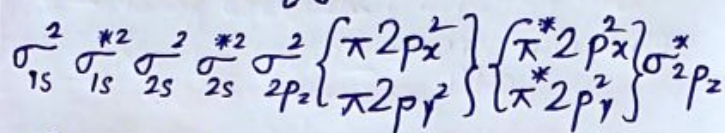 σ1s² σ*1s² σ2s² σ*2s² σ2pz² {π2px² π2py²} {π*2px² π*2py²} σ*2pz